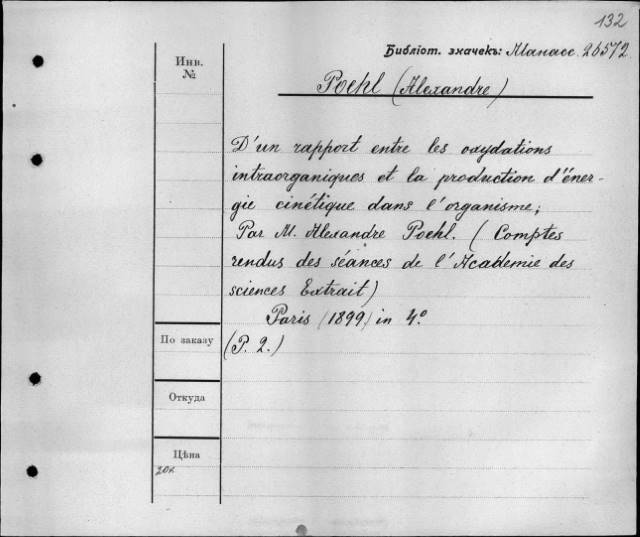 132
Библіот. значекъ: Манасс. 26572
Инв.
№
Poehl (Alexandre)
D'un rapport entre les oxydations
intraorganiques et la production d'éner-
gie cinétique dans l'organisme;
Par M. Alexandre Poehl. (Comptes
rendus des séances de l'Academie des
sciences Extrait)
Paris (1899) in 4º
(P. 2.)
По заказу
Откуда
Цѣна
20к